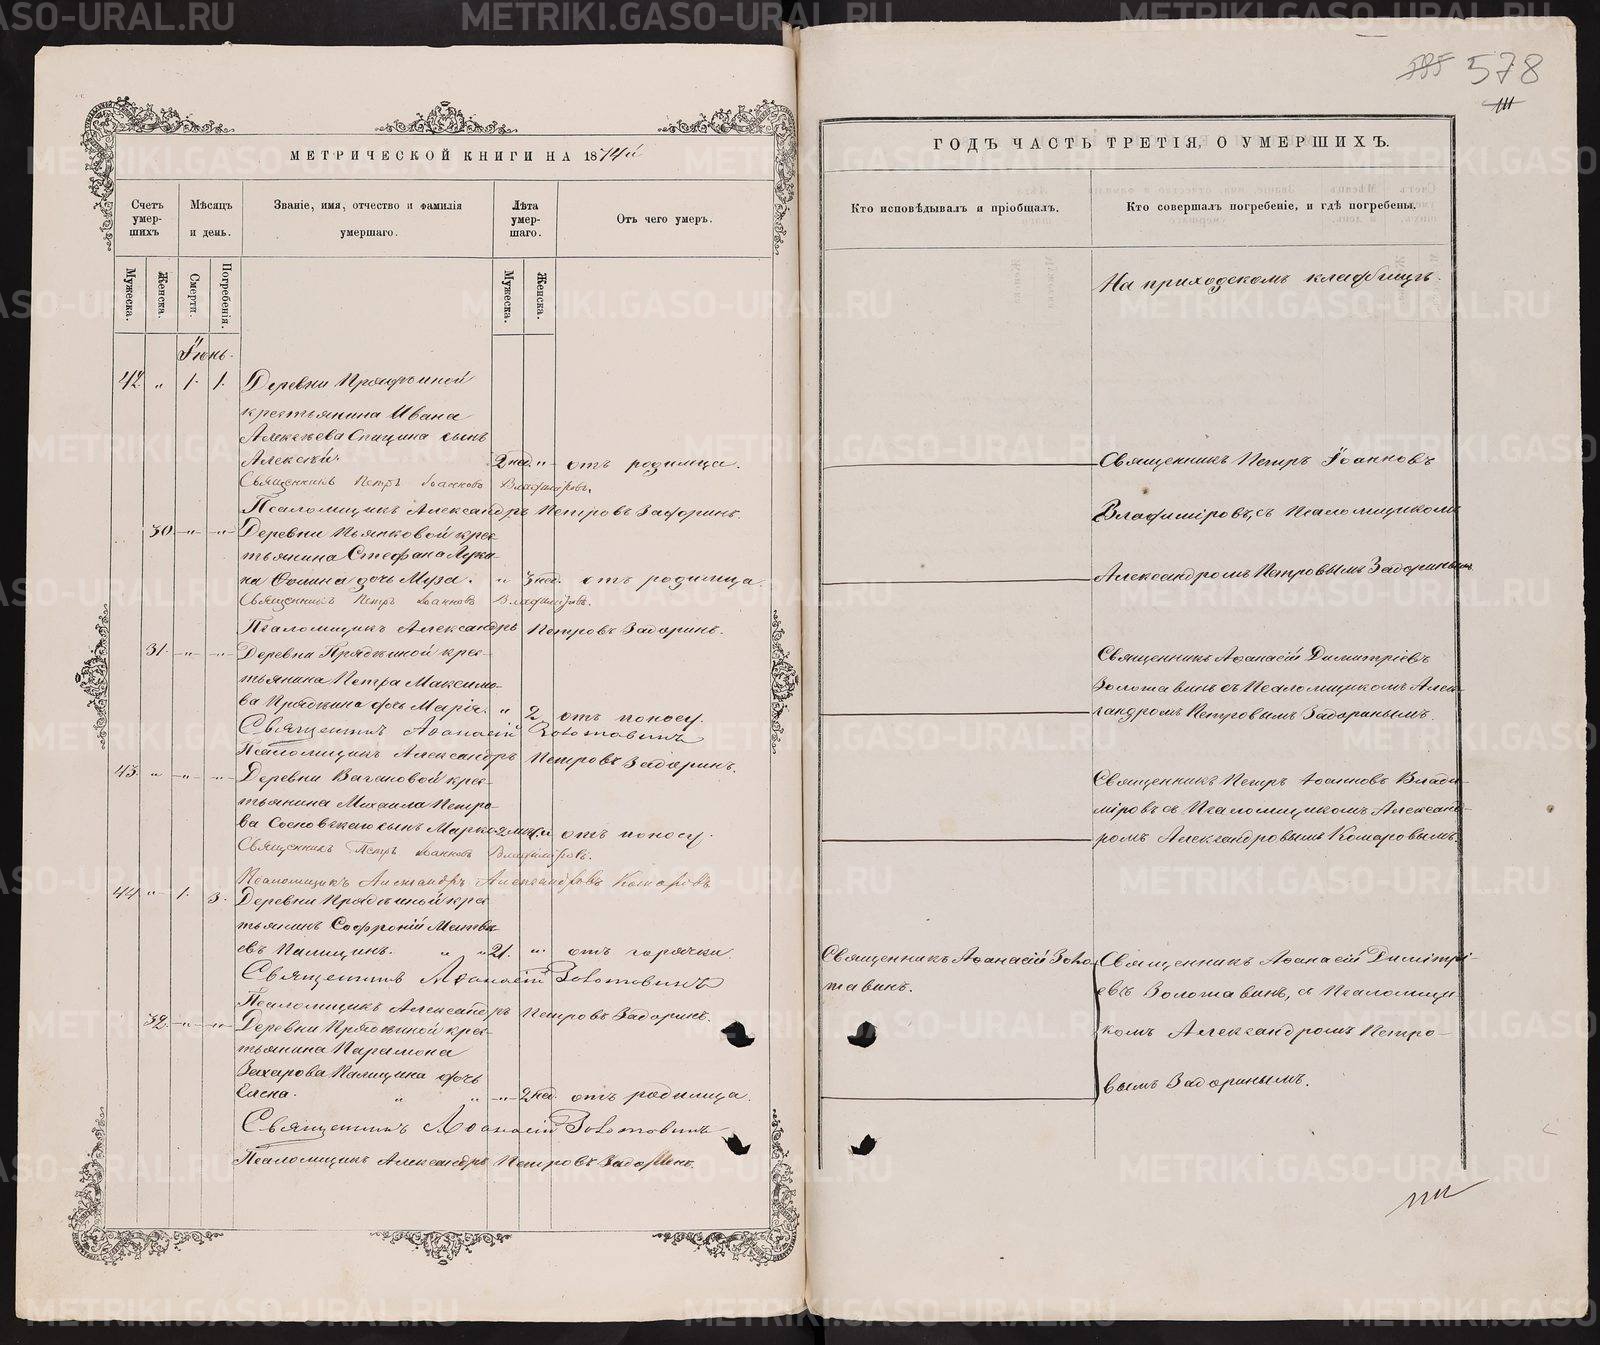 МЕТРИЧЕСКОЙ КНИГИ НА 1874й
Счетъ умер-шихъ
Мѣсяцъ и день.
Званіе, имя, отчество и фамилія умершаго.
Лѣта умер-шаго.
Отъ чего умеръ.
Мужеска. Женска. Смерти. Погребенія. Мужеска. Женска.
Іюнь.
42 " 1. 1. Деревни
крестьянина Ивана
Алексѣева Спицина сынъ
Алексѣй. 2 нед. " отъ родимца.
Священникъ Петръ Іоанновъ Владиміровъ.
Псаломщикъ Александръ Петровъ Задоринъ.
30 -"- -"- Деревни Пьянковой крес-
тьянина Стефана Луки-
на Ѳомина дочь Муза. " 3 нед. отъ родимца.
Священникъ Петръ Іоанновъ Владиміровъ.
Псаломщикъ Александръ Петровъ Задоринъ.
31. -"- -"- Деревни Прядеиной крес-
тьянина Петра Максимо-
ва Прядеина дочь Марія. " 2 отъ поносу.
Священникъ Аѳанасій Золотавинъ
Псаломщикъ Александръ Петровъ Задоринъ.
43. " -"- -"- Деревни Вагановой крес-
тьянина Михаила Петро-
ва Сосновскаго сынъ Маркъ 2 мѣс. " отъ поносу.
Священникъ Петръ Іоанновъ Владиміровъ.
Псаломщикъ Александръ Александровъ Комаровъ
44. -"- 1. 3. Деревни Прядеиной крес-
тьянинъ Софроній Матвѣ-
евъ Палицинъ. " " 21. " отъ горячки.
Священникъ Аѳанасій Золотавинъ
Псаломщикъ Александръ Петровъ Задоринъ.
32. -"- -"- Деревни Прядеиной крес-
тьянина Парамона
Захарова Палицина дочь
Елена. " " -"- 2 нед. отъ родимца.
Священникъ Аѳанасій Золотавинъ
Псаломщикъ Александръ Петровъ Задоринъ.
585 578
111
ГОДЪ ЧАСТЬ ТРЕТІЯ, О УМЕРШИХЪ.
Кто исповѣдывалъ и пріобщалъ.
Кто совершалъ погребеніе, и гдѣ погребены.
На приходскомъ кладбищѣ.
Священникъ Петръ Іоанновъ
Владиміровъ, съ Псаломщикомъ
Александромъ Петровымъ Задоринымъ
Священникъ Аѳанасій Димитріевъ
Золотавинъ съ Псаломщикомъ Алек-
сандромъ Петровымъ Задоринымъ.
Священникъ Петръ Іоанновъ Влади-
міровъ съ Псаломщикомъ Александ-
ромъ Александровымъ Комаровымъ.
Священникъ Аѳанасій Золо-
тавинъ.
Священникъ Аѳанасій Димитрі-
евъ Золотавинъ, съ Псаломщи-
комъ Александромъ Петро-
вымъ Задоринымъ.
METRIKI.GASO-URAL.RU